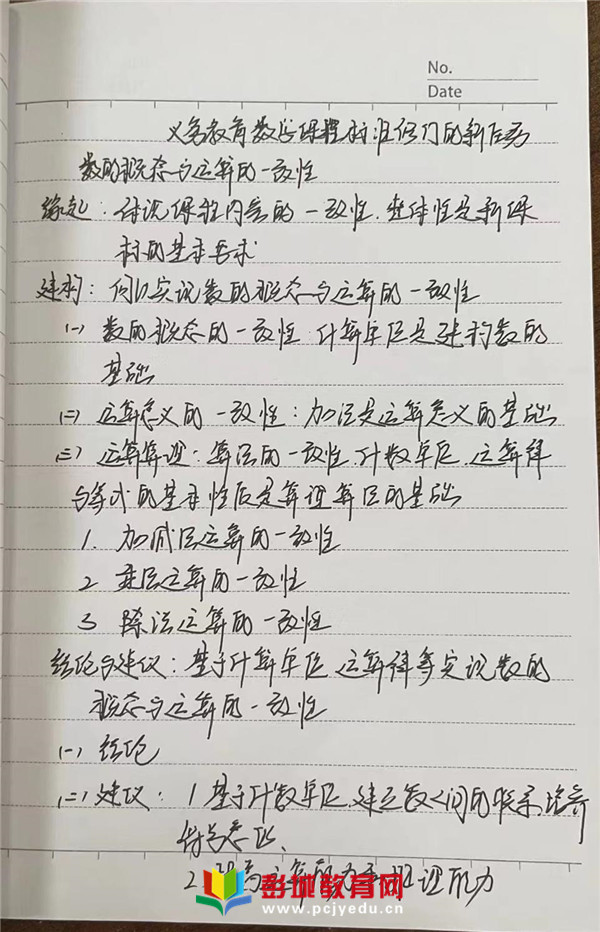 No.
Date
义务教育数学课程标准修订的新任务
数的概念与运算的一致性
缘起:体现课程内容的一致性.整体性是新课
标的基本要求
建构:何以实现数的概念与运算的一致性
(一)数的概念的一致性:计算单位是建构数的
基础
(二)运算意义的一致性:加法是运算意义的基础
(三)运算算理.算法的一致性.计数单位、运算律
与等式的基本性质是算理算法的基础
1. 加减法运算的一致性
2 乘法运算的一致性
3 除法运算的一致性
结论与建议:基于计算单位 运算律等实现数的
概念与运算的一致性
(一)结论
(二)建议: 1 基于计数单位、建立数之间的联系,培养
符号意识、
2 提高运算能力和推理能力
彭城教育网
www.pcjyedu.cn